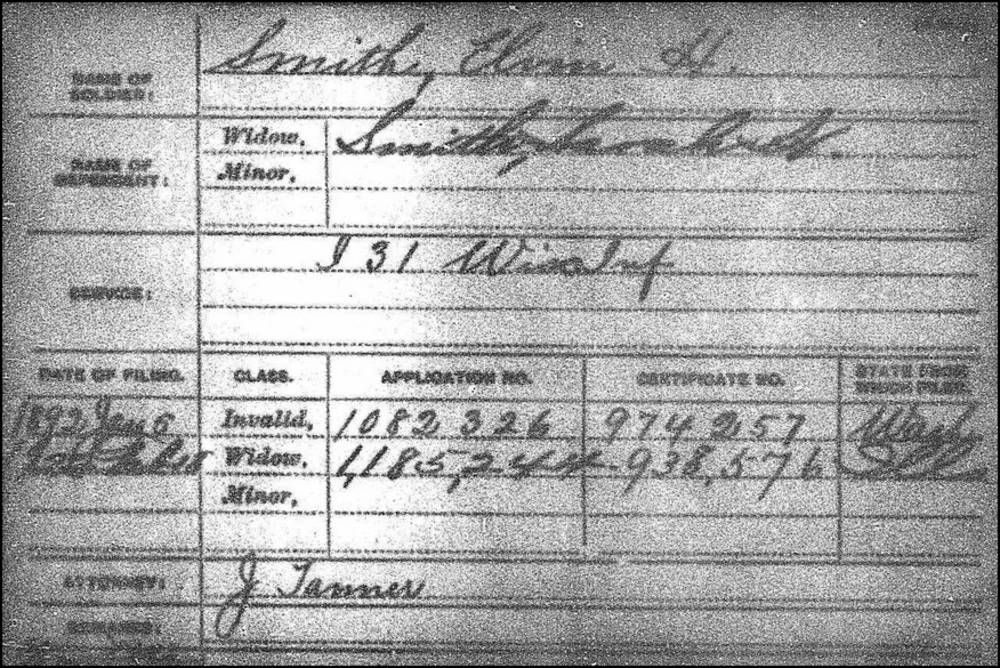 NAME OF SOLDIER: Smith, Elvin H.
NAME OF DEPENDANT: Widow, Smith,
Minor,
SERVICE: I 31 Wis Inf
DATE OF FILING. CLASS. APPLICATION NO. CERTIFICATE NO. STATE FROM WHICH FILED.
1892 Jan 5 Invalid, 1082 326 974 257 Wash
Widow, 1,185,244 938,576
Minor,
ATTORNEY: J Tanner
REMARKS: